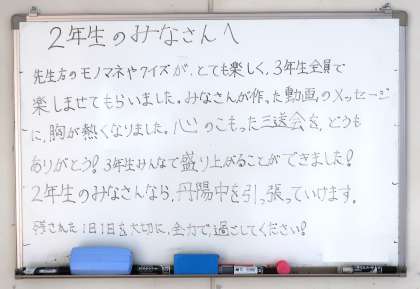 2年生のみなさんへ
先生方のモノマネやクイズが、とても楽しく、3年生全員で
楽しませてもらいました。みなさんが作った動画のメッセージ
に、胸が熱くなりました。心のこもった三送会を、どうも
ありがとう！3年生みんなで盛り上がることができました！
2年生のみなさんなら、丹陽中を引っ張っていけます。
残された1日1日を大切に、全力で過ごしてください！